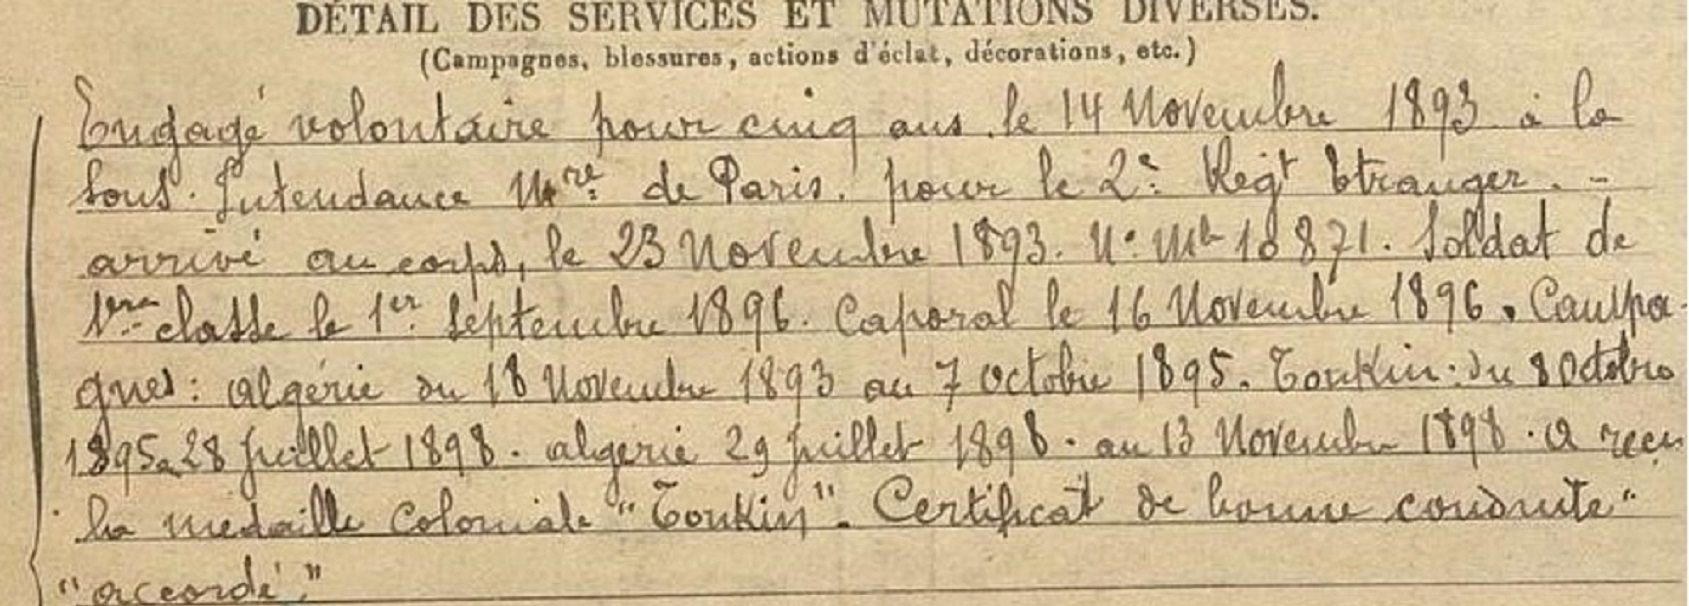 DÉTAIL DES SERVICES ET MUTATIONS DIVERSES.
(Campagnes, blessures, actions d'éclat, décorations, etc.)
Engagé volontaire pour cinq ans le 14 Novembre 1893 à la
Sous-Intendance Mre de Paris. pour le 2e Regt Etranger. -
arrivé au corps, le 23 Novembre 1893. N° Mle 10871. Soldat de
1ère classe le 1er Septembre 1896. Caporal le 16 Novembre 1896. Campa-
gnes: algérie du 18 Novembre 1893 au 7 Octobre 1895. Tonkin: du 8 Octobre
1895 a 28 Juillet 1898. algerie 29 Juillet 1898. au 13 Novembre 1898. a reçu
la médaille Coloniale "Tonkin". Certificat de bonne conduite"
"accordé."